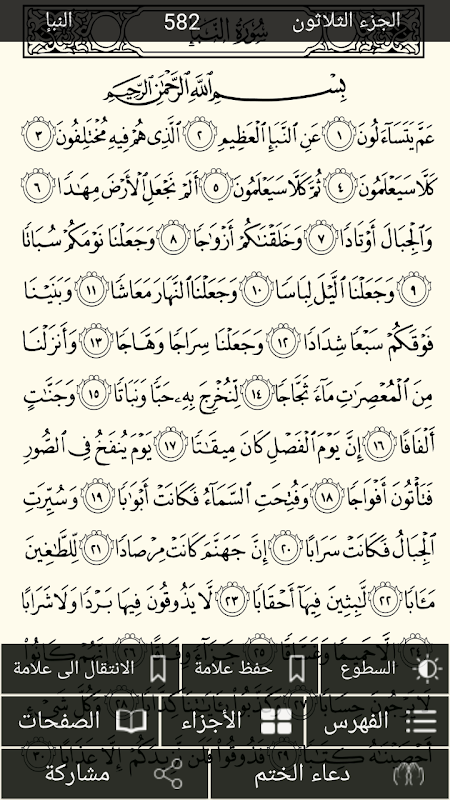 الجزء الثلاثون 582 النبإ
سُورَةُ النَّبَإِ
بِسْمِ اللَّهِ الرَّحْمَٰنِ الرَّحِيمِ
عَمَّ يَتَسَآءَلُونَ ١ عَنِ ٱلنَّبَإِ ٱلْعَظِيمِ ٢ ٱلَّذِى هُمْ فِيهِ مُخْتَلِفُونَ ٣
كَلَّا سَيَعْلَمُونَ ٤ ثُمَّ كَلَّا سَيَعْلَمُونَ ٥ أَلَمْ نَجْعَلِ ٱلْأَرْضَ مِهَٰدًا ٦
وَٱلْجِبَالَ أَوْتَادًا ٧ وَخَلَقْنَٰكُمْ أَزْوَٰجًا ٨ وَجَعَلْنَا نَوْمَكُمْ سُبَاتًا
٩ وَجَعَلْنَا ٱلَّيْلَ لِبَاسًا ١٠ وَجَعَلْنَا ٱلنَّهَارَ مَعَاشًا ١١ وَبَنَيْنَا
فَوْقَكُمْ سَبْعًا شِدَادًا ١٢ وَجَعَلْنَا سِرَاجًا وَهَّاجًا ١٣ وَأَنزَلْنَا
مِنَ ٱلْمُعْصِرَٰتِ مَآءً ثَجَّاجًا ١٤ لِّنُخْرِجَ بِهِۦ حَبًّا وَنَبَاتًا ١٥ وَجَنَّٰتٍ
أَلْفَافًا ١٦ إِنَّ يَوْمَ ٱلْفَصْلِ كَانَ مِيقَٰتًا ١٧ يَوْمَ يُنفَخُ فِى ٱلصُّورِ
فَتَأْتُونَ أَفْوَاجًا ١٨ وَفُتِحَتِ ٱلسَّمَآءُ فَكَانَتْ أَبْوَٰبًا ١٩ وَسُيِّرَتِ
ٱلْجِبَالُ فَكَانَتْ سَرَابًا ٢٠ إِنَّ جَهَنَّمَ كَانَتْ مِرْصَادًا ٢١ لِّلطَّٰغِينَ
مَـَٔابًا ٢٢ لَّٰبِثِينَ فِيهَآ أَحْقَابًا ٢٣ لَّا يَذُوقُونَ فِيهَا بَرْدًا وَلَا شَرَابًا
السطوع حفظ علامة الانتقال الى علامة
الفهرس الأجزاء الصفحات
دعاء الختم مشاركة